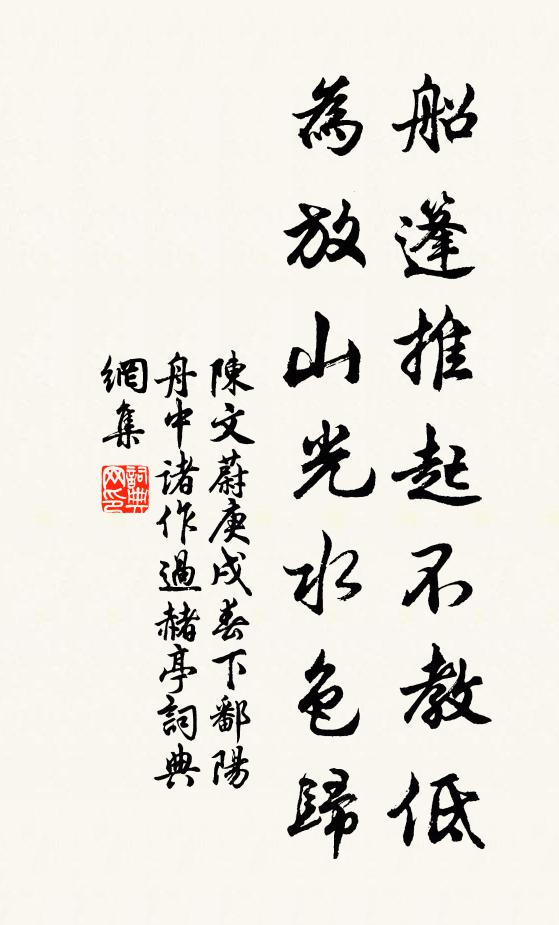 船篷推起不教低
為放山光水色歸
陳文蔚庚戌春下鄱陽
舟中諸作過赭亭詞典
網集
詞典
网印